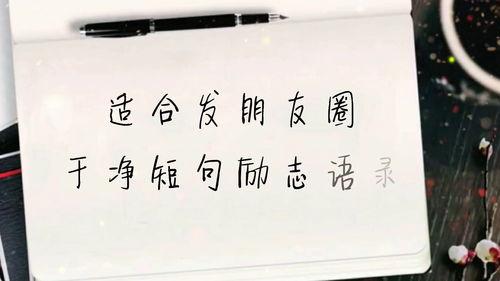 适合发朋友圈
干净短句励志语录